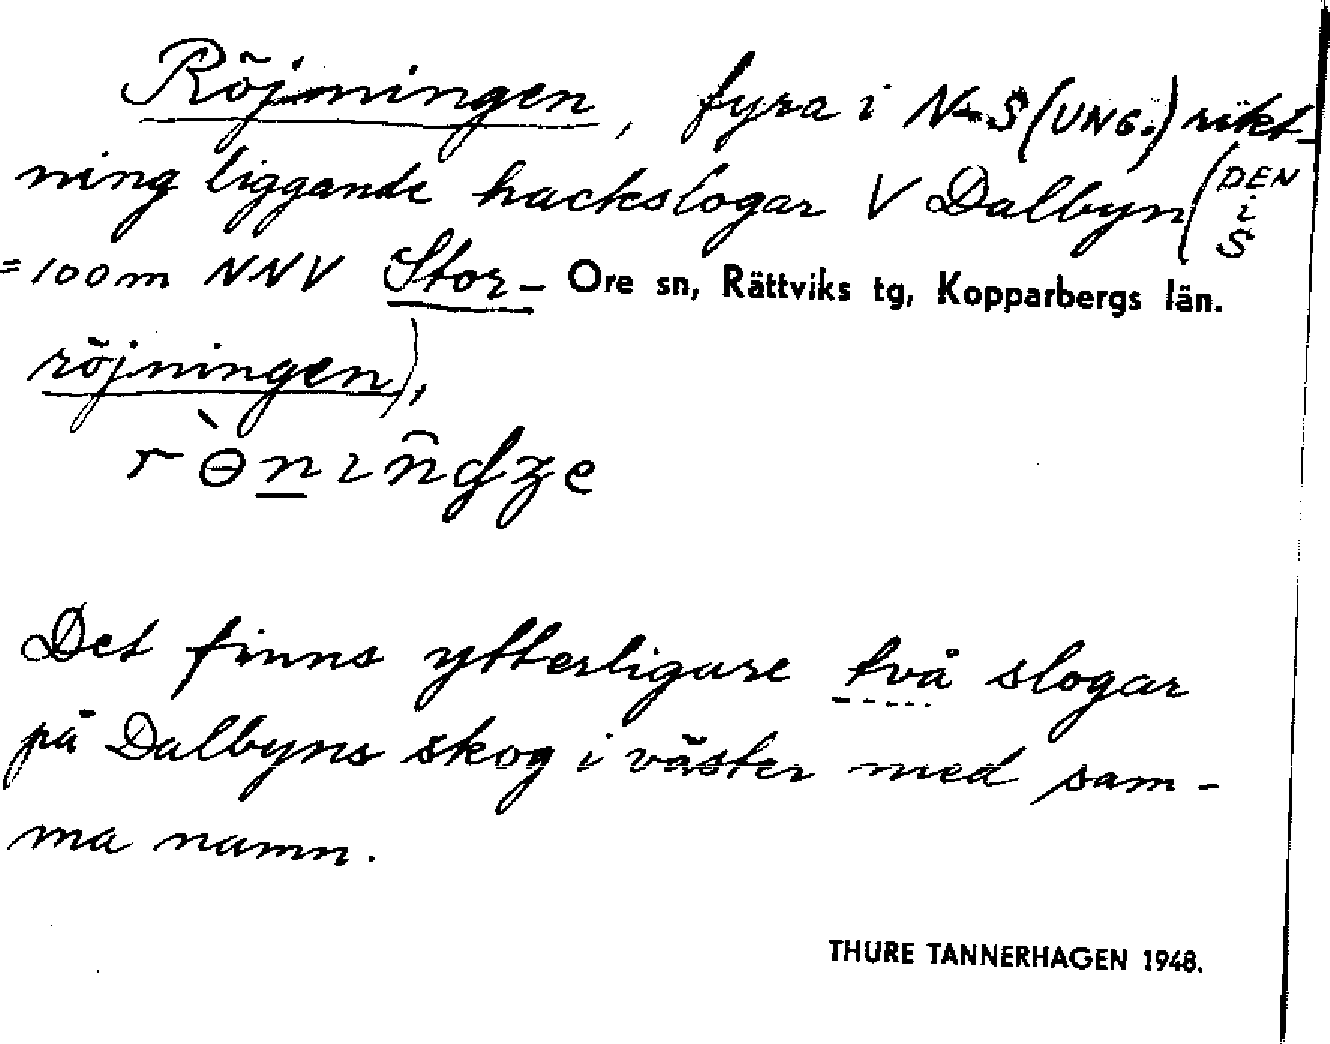 Röjningen, fyra i N-S (UNG.) rikt-
ning liggande hackslogar V Dalbyn (DEN i S
= 100 m NNV Stor-
Ore sn, Rättviks tg, Kopparbergs län.
röjningen),
Det finns ytterligare två slogar
på Dalbyns skog i väster med sam-
ma namn.
THURE TANNERHAGEN 1948.